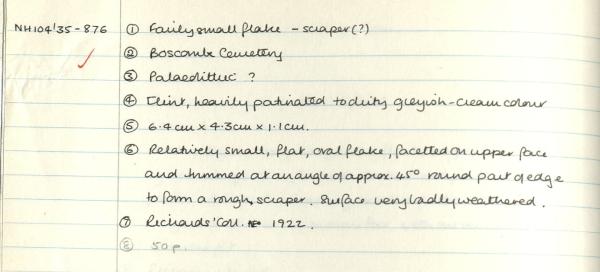 NH104'35-876 ① Fairly small flake - scraper (?)
② Boscombe Cemetery
③ Palaeolithic ?
④ Flint, heavily patinated to dirty greyish-cream colour
⑤ 6.4cm x 4.3cm x 1.1cm.
⑥ Relatively small, flat, oval flake, facetted on upper face
and trimmed at an angle of approx. 45° round part of edge
to form a rough scraper. Surface very badly weathered.
⑦ Richards' Coll. 1922.
⑧ 50p.